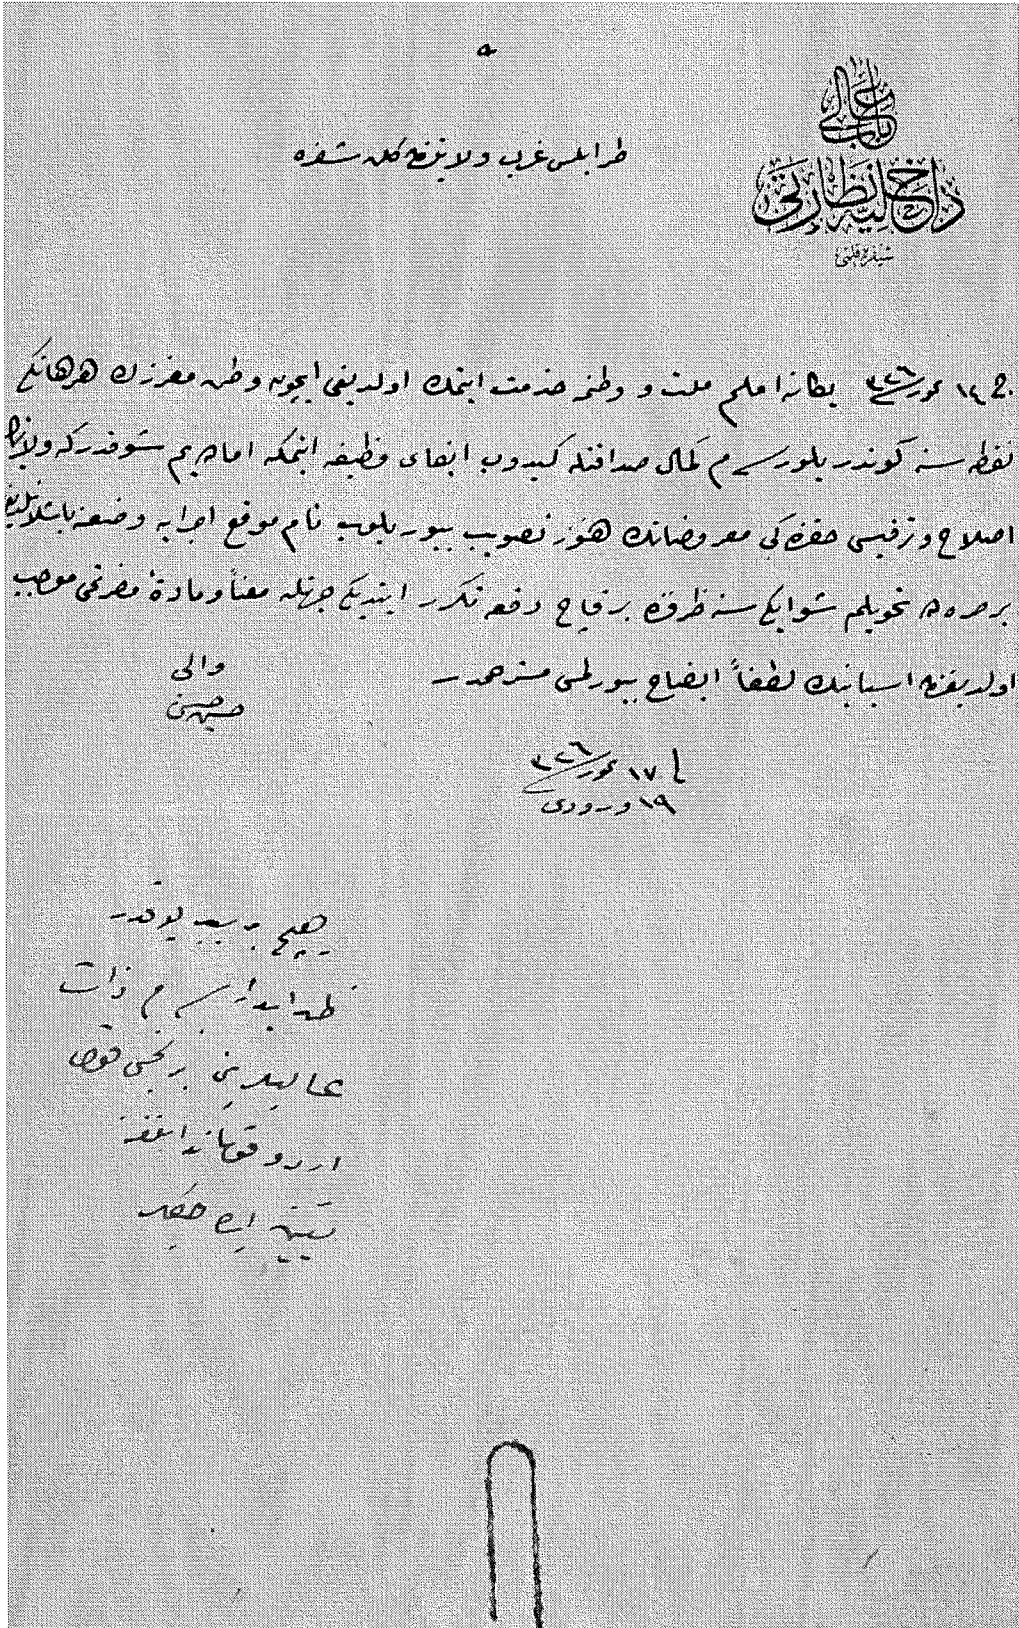 ٥
باب عالی
داخلیه نظارتی
شیفره قلمی
طرابلس غرب ولایتندن کلن شفره
ج ١٤ تموز ٣٢٦ یکانه املم ملت و وطنه خدمت ایتمك اولدیغی ایچون وطن معززك هر هانکی
نقطه سنه کوندریلورسه م کمال صداقتله کیدوب ایفای وظیفه ایتمکه اماده یم شوقدرکه ولایتك
اصلاح و ترفیهی حقنده کی معروضاتك هنوز تصویب بیوریلوب تام موقع اجرایه وضعنه باشلانیلدیغی
بر صره ده تحویلم شو ایکی سنه ظرفنده بر قاچ دفعه تکرر ایتدیکی جهتله معناً و مادةً مضرتمی موجب
اولدیغندن اسبابنك لطفاً ایضاح بیورلمسی مسترحمدر
والی
حسین حسنی
فی ١٧ تموز ٣٢٦
١٩ ورودی
هیچ بر سبب یوقدر
ذات
عالیلرینی برنجی
اردو قوماندانلغنه
تعیین ایده جکلر